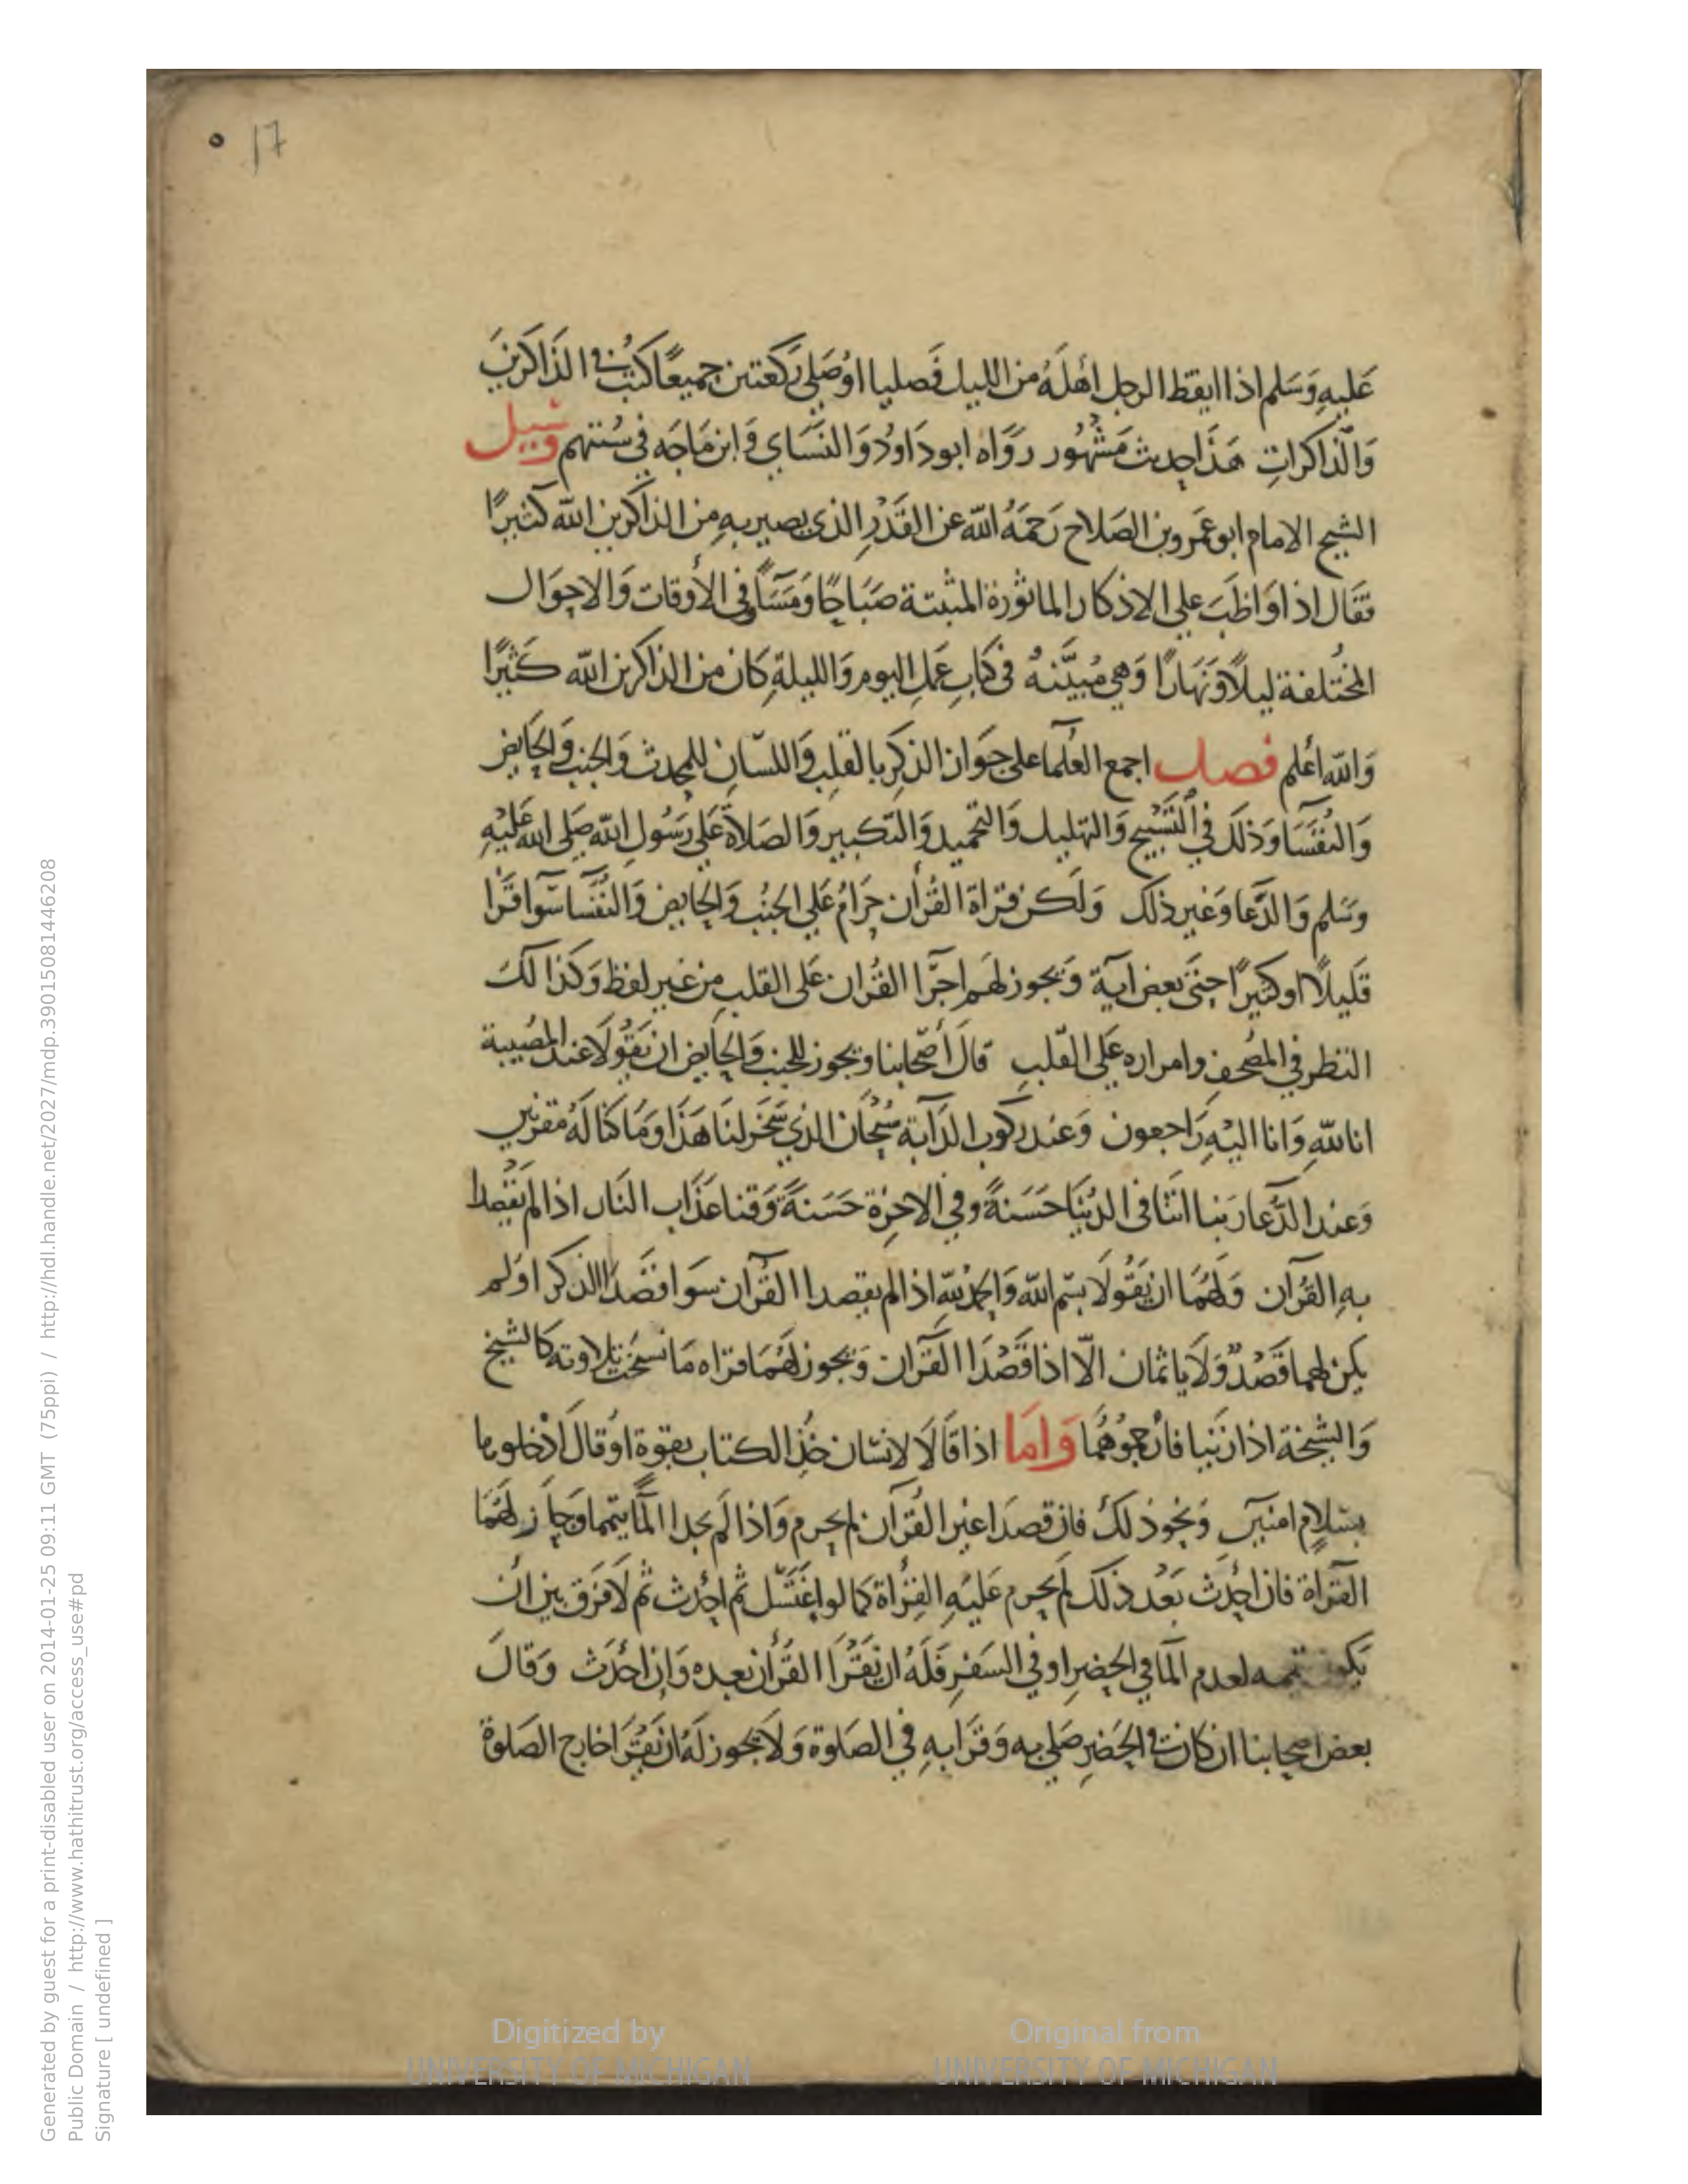 17
عَليهِ وَسَلم اذا ايقظ الرجل اهلَهُ من الليل فَصليا اوْصَلى رَكعتين جميعًا كتبُ في الذَاكرينَ
وَالذاكراتِ هَذَا حديث مَشْهُور رَوَاه ابو دَاوُد وَالنسَاي وَابن مَاجَه في سُننهم وسيل
الشيخ الامام ابو عَمرو بن الصَلاح رَحمَهُ الله عن القَدْرِ الذي يصير بهِ من الذاكرين الله كثيرًا
فقَال اذا وَاظبَ على الاذكار الماثورة المثبتة صَبَاحًا وَمَسَآً في الأوقات وَالاحوَال
المختلفة ليلاً وَنهَارًا وَهي مُبَيَّنهُ في كتابِ عَمَل اليوم وَالليلةِ كان من الذاكرين الله كَثيرًا
وَالله أعلم فصل اجمع العُلمآ على جوَاز الذكرِ بالقلبِ وَاللسَانِ للمحدث وَالجنب وَالحَايض
وَالنُفسَآ وَذلكَ في التَسْبيح وَالتهليل وَالتحميد وَالتكبير وَالصَلاةِ عَلى رَسُول الله صَلى الله عَليْهِ
وَسَلم وَالدعَا وَغير ذلك وَلكن قراة القُرأن حَرامُ عَلى الجنُب وَالحايض وَالنُفَسَا سَوآ قرَا
قَليلاً او كثيرًا حتىَ بَعض آية وَيجوز لهَم اجرَآ القُرآن عَلى القلب من غير لفظ وَكذا لكَ
النظر في المصْحف وامراره عَلى القَلبِ قالَ أصْحَابنا وَيجوز للجنب وَالحَايض ان يَقُولاَ عند المصُيبة
انا للهِ وَانا اليْهِ رَاجعون وَعند ركوب الدَآبة سُبْحَان الذي سَخرَ لنَا هَذَا وَمَا كنا لَهُ مقرنين
وَعند الدّعآ رَبنا اتنَا في الدُنيَا حَسَنةً وفي الاخِرَة حَسَنةً وَقنا عَذَاب النَار اذا لم يَقْصِدا
بهِ القرآن وَلهَمَا ان يَقُولاَ بسْم الله وَالحمدْ للهِ اذا لم يقصدا القُرآن سَوا قصَدَا الذكر اوَلم
يكن لهما قَصْدٌ وَلاَ ياثمان الاّ اذا قَصَدَا القَرآن وَيجوز لهُمَا قراه مَا نسخَت تلاوته كالشيخ
وَالشيخة اذا زنَيا فارْجموُهُمَا وَامَا اذا قَالاَ لانسَان خذ الكتاب بقوة اوْ قالَ ادْخلوها
بسَلامٍ امنين وَنحوذ لكَ فان قصدَا غير القُرآن لم يحرم وَاذا لَم يجدا المآ تيمما وَجاز لهَمَا
القرآة فان احْدَثَ بَعْد ذلك لم يحرم عَليْهِ القِرُاة كما لو اغتَسَل ثم احْدث ثم لاَ فرَق بين ان
يَكون تيممه لعدم المآ في الحضرِ او في السَفرِ فَلَهُ ان يَقْرَا القُرأن بعده وَان احْدَث وَقالَ
بعض اصحابنا ان كان في الحَضَرِ صَلى به وَقرَا بهِ في الصَلوة وَلاَ يجوز لهُ ان يَقْرَا خارج الصَلوة
Generated by guest for a print-disabled user on 2014-01-25 09:11 GMT (75ppi) / http://hdl.handle.net/2027/mdp.39015081446208
Public Domain / http://www.hathitrust.org/access_use#pd
Signature [ undefined ]
Digitized by UNIVERSITY OF MICHIGAN
Original from UNIVERSITY OF MICHIGAN